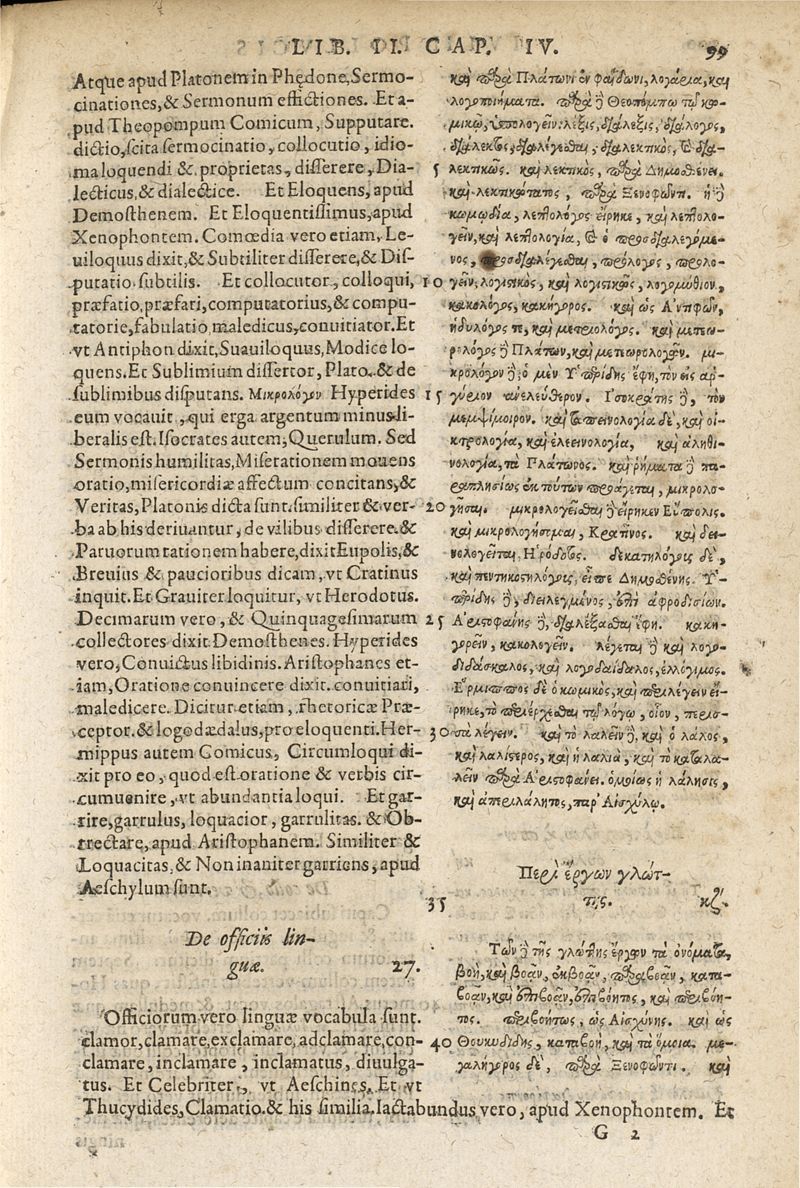 LIB. II. CAP. IV. 99
Atque apud Platonem in Phędone, Sermo-
cinationes, & Sermonum effictiones. Et a-
pud Theopompum Comicum, Supputare.
dictio, scita sermocinatio, collocutio, idio-
ma loquendi & proprietas, disserere, Dia-
lecticus, & dialectice. Et Eloquens, apud
Demosthenem. Et Eloquentissimus, apud
Xenophontem. Comœdia vero etiam, Le-
uiloquus dixit, & Subtiliter disserere, & Dis-
putatio subtilis. Et collocutor, colloqui,
præfatio, præfari, computatorius, & compu-
tatorie, fabulatio, maledicus, conuitiator. Et
vt Antiphon dixit, Suauiloquus, Modice lo-
quens. Et Sublimium dissertor, Plato. & de
sublimibus disputans. Μικρολόγον Hyperides
eum vocauit, qui erga argentum minus li-
beralis est. Isocrates autem, Querulum. Sed
Sermonis humilitas, Miserationem mouens
oratio, misericordiæ affectum concitans, &
Veritas, Platonis dicta sunt. similiter & ver-
ba ab his deriuantur, de vilibus disserere. &
Paruorum rationem habere, dixit Eupolis, &
Breuius & paucioribus dicam, vt Cratinus
inquit. Et Grauiter loquitur, vt Herodotus.
Decimarum vero, & Quinquagesimarum
collectores dixit Demosthenes. Hyperides
vero, Conuictus libidinis. Aristophanes et-
iam, Oratione conuincere dixit. conuitiari,
maledicere. Dicitur etiam, rhetoricæ Præ-
ceptor. & logodædalus, pro eloquenti. Her-
mippus autem Comicus, Circumloqui di-
xit pro eo, quod est oratione & verbis cir-
cumuenire, vt abundantia loqui. Et gar-
rire, garrulus, loquacior, garrulitas. & Ob-
trectare, apud Aristophanem. Similiter &
Loquacitas, & Non inaniter garriens, apud
Aeschylum sunt.
De officiis lin-
guæ. 27.
Officiorum vero linguæ vocabula sunt.
clamor, clamare, exclamare, adclamare, con-
clamare, inclamare, inclamatus, diuulga-
tus. Et Celebriter, vt Aeschines. Et vt
Thucydides, Clamatio. & his similia. Iactabundus vero, apud Xenophontem. Et
καὶ παρὰ Πλάτωνι ἐν φαίδωνι, λογάρια, καὶ
λογοποιήματα. παρὰ δὲ Θεοπόμπῳ τῷ κω-
μικῷ, ὑπολογεῖν· λέξις, διάλεξις, διάλογος,
διάλεκτος, διαλέγεσθαι, διαλεκτικὸς, καὶ δια-
5 λεκτικῶς. καὶ λεκτικὸς, παρὰ Δημοσθένει.
καὶ λεκτικώτατος, παρὰ Ξενοφῶντι. ἡ δὲ
κωμῳδία, λεπτολόγος εἴρηκε, καὶ λεπτολο-
γεῖν, καὶ λεπτολογία, καὶ ὁ προσδιαλεγόμε-
νος, προσδιαλέγεσθαι, πρόλογος, προλο-
10 γεῖν, λογιστικὸς, καὶ λογιστικῶς, λογομύθιον,
κακολόγος, κακήγορος. καὶ ὡς Ἀντιφῶν,
ἡδυλόγος τε, καὶ μετριολόγος. καὶ μετεω-
ρολόγος δὲ Πλάτων, καὶ μετεωρολογεῖν. μι-
κρολόγον δὲ, ὁ μὲν Ὑπερίδης ἔφη, τὸν εἰς ἀρ-
15 γύριον ἀνελεύθερον. Ἰσοκράτης δὲ, τὸν
μεμψίμοιρον. καὶ ταπεινολογία δὲ, καὶ οἰ-
κτρολογία, καὶ ἐλεεινολογία, καὶ ἀληθι-
νολογία, τὰ Πλάτωνος. καὶ ῥήματα δὲ πα-
ραπλησίως ἐκ τούτων παράγεται, μικρολο-
20 γῆσαι. μικρολογεῖσθαι δὲ εἴρηκεν Εὔπολις.
καὶ μικρολογήσομαι, Κρατῖνος. καὶ δει-
νολογεῖται, Ἡρόδοτος. δεκατηλόγους δὲ,
καὶ πεντηκοστηλόγους, εἶπε Δημοσθένης. Ὑ-
περίδης δὲ, διειλεγμένος, ἐπὶ ἀφροδισίων.
25 Ἀριστοφάνης δὲ, διαλέξασθαι ἔφη. κακη-
γορεῖν, κακολογεῖν. λέγεται δὲ καὶ λογο-
διδάσκαλος, καὶ λογοδαίδαλος, ἐλλόγιμος.
Ἕρμιππος δὲ ὁ κωμικὸς, καὶ περιλέγειν εἴ-
ρηκε, τὸ περιέρχεσθαι τῷ λόγῳ, οἷον, περισ-
30 σὰ λέγειν. καὶ τὸ λαλεῖν δὲ, καὶ ὁ λάλος,
καὶ λαλίστερος, καὶ ἡ λαλιὰ, καὶ τὸ καταλα-
λεῖν παρὰ Ἀριστοφάνει. ὁμοίως ἡ λάλησις,
καὶ ἀπεριλάλητος, παρ' Αἰσχύλῳ.
Περὶ ἔργων γλώτ-
35 της. κζʹ.
Τῶν δὲ τῆς γλώττης ἔργων τὰ ὀνόματα,
βοὴ, καὶ βοᾷν, ἐκβοᾷν, παραβοᾷν, κατα-
βοᾷν, καὶ ἐπιβοᾷν, ἐπιβόητος, καὶ περιβόη-
τος. περιβοήτως, ὡς Αἰσχίνης. καὶ ὡς
40 Θουκυδίδης, καταβοὴ, καὶ τὰ ὅμοια. με-
γαλήγορος δὲ, παρὰ Ξενοφῶντι. καὶ
G 2